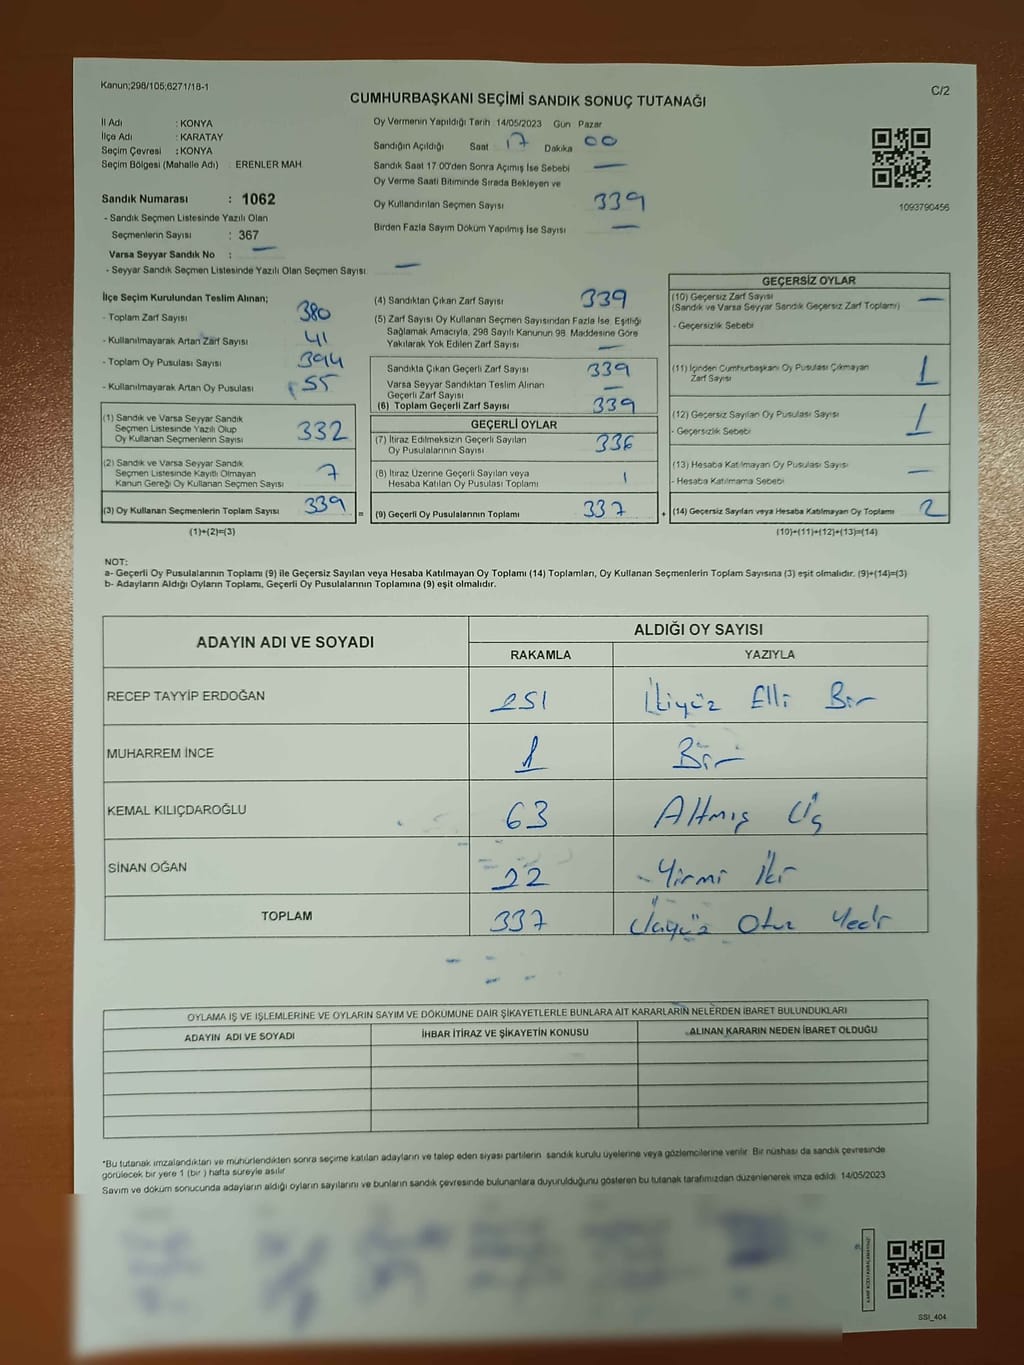 Kanun;298/105;6271/18-1
C/2
CUMHURBAŞKANI SEÇİMİ SANDIK SONUÇ TUTANAĞI
İl Adı : KONYA
İlçe Adı : KARATAY
Seçim Çevresi : KONYA
Seçim Bölgesi (Mahalle Adı) : ERENLER MAH.
Sandık Numarası : 1062
- Sandık Seçmen Listesinde Yazılı Olan
Seçmenlerin Sayısı : 367
Varsa Seyyar Sandık No : —
- Seyyar Sandık Seçmen Listesinde Yazılı Olan Seçmen Sayısı: —
Oy Vermenin Yapıldığı Tarih :14/05/2023 Gün Pazar
Sandığın Açıldığı Saat 17 Dakika 00
Sandık Saat 17:00'den Sonra Açımış İse Sebebi —
Oy Verme Saati Bitiminde Sırada Bekleyen ve
Oy Kullandırılan Seçmen Sayısı 339
Birden Fazla Sayım Döküm Yapılmış İse Sayısı —
1093790456
İlçe Seçim Kurulundan Teslim Alınan;
- Toplam Zarf Sayısı 380
- Kullanılmayarak Artan Zarf Sayısı 41
- Toplam Oy Pusulası Sayısı 394
- Kullanılmayarak Artan Oy Pusulası 55
(1) Sandık ve Varsa Seyyar Sandık
Seçmen Listesinde Yazılı Olup
Oy Kullanan Seçmenlerin Sayısı 332
(2) Sandık ve Varsa Seyyar Sandık
Seçmen Listesinde Kayıtlı Olmayan
Kanun Gereği Oy Kullanan Seçmen Sayısı 7
(3) Oy Kullanan Seçmenlerin Toplam Sayısı 339
=
(1)+(2)=(3)
(4) Sandıktan Çıkan Zarf Sayısı 339
(5) Zarf Sayısı Oy Kullanan Seçmen Sayısından Fazla İse, Eşitliği
Sağlamak Amacıyla, 298 Sayılı Kanunun 98. Maddesine Göre
Yakılarak Yok Edilen Zarf Sayısı —
Sandıkta Çıkan Geçerli Zarf Sayısı 339
Varsa Seyyar Sandıktan Teslim Alınan
Geçerli Zarf Sayısı —
(6) Toplam Geçerli Zarf Sayısı 339
GEÇERLİ OYLAR
(7) İtiraz Edilmeksizin Geçerli Sayılan
Oy Pusulalarının Sayısı 336
(8) İtiraz Üzerine Geçerli Sayılan veya
Hesaba Katılan Oy Pusulası Toplamı 1
(9) Geçerli Oy Pusulalarının Toplamı 337
+
GEÇERSİZ OYLAR
(10) Geçersiz Zarf Sayısı —
(Sandık ve Varsa Seyyar Sandık Geçersiz Zarf Toplamı)
- Geçersizlik Sebebi
(11) İçinden Cumhurbaşkanı Oy Pusulası Çıkmayan
Zarf Sayısı 1
(12) Geçersiz Sayılan Oy Pusulası Sayısı 1
- Geçersizlik Sebebi
(13) Hesaba Katılmayan Oy Pusulası Sayısı —
- Hesaba Katılmama Sebebi
(14) Geçersiz Sayılan veya Hesaba Katılmayan Oy Toplamı 2
(10)+(11)+(12)+(13)=(14)
NOT:
a- Geçerli Oy Pusulalarının Toplamı (9) ile Geçersiz Sayılan veya Hesaba Katılmayan Oy Toplamı (14) Toplamları, Oy Kullanan Seçmenlerin Toplam Sayısına (3) eşit olmalıdır. (9)+(14)=(3)
b- Adayların Aldığı Oyların Toplamı, Geçerli Oy Pusulalarının Toplamına (9) eşit olmalıdır.
ADAYIN ADI VE SOYADI
ALDIĞI OY SAYISI
RAKAMLA YAZIYLA
RECEP TAYYİP ERDOĞAN 251 İkiyüz Elli Bir
MUHARREM İNCE 1 Bir
KEMAL KILIÇDAROĞLU 63 Altmış Üç
SİNAN OĞAN 22 Yirmi İki
TOPLAM 337 Üçyüz Otuz Yedi
OYLAMA İŞ VE İŞLEMLERİNE VE OYLARIN SAYIM VE DÖKÜMÜNE DAİR ŞİKAYETLERLE BUNLARA AİT KARARLARIN NELERDEN İBARET BULUNDUKLARI
ADAYIN ADI VE SOYADI İHBAR İTİRAZ VE ŞİKAYETİN KONUSU ALINAN KARARIN NEDEN İBARET OLDUĞU
*Bu tutanak imzalandıktan ve mühürlendikten sonra seçime katılan adayların ve talep eden siyasi partilerin sandık kurulu üyelerine veya gözlemcilerine verilir. Bir nüshası da sandık çevresinde
görülecek bir yere 1 (bir ) hafta süreyle asılır.
Sayım ve döküm sonucunda adayların aldığı oyların sayılarını ve bunların sandık çevresinde bulunanlara duyurulduğunu gösteren bu tutanak tarafımızdan düzenlenerek imza edildi. 14/05/2023
SSI_404